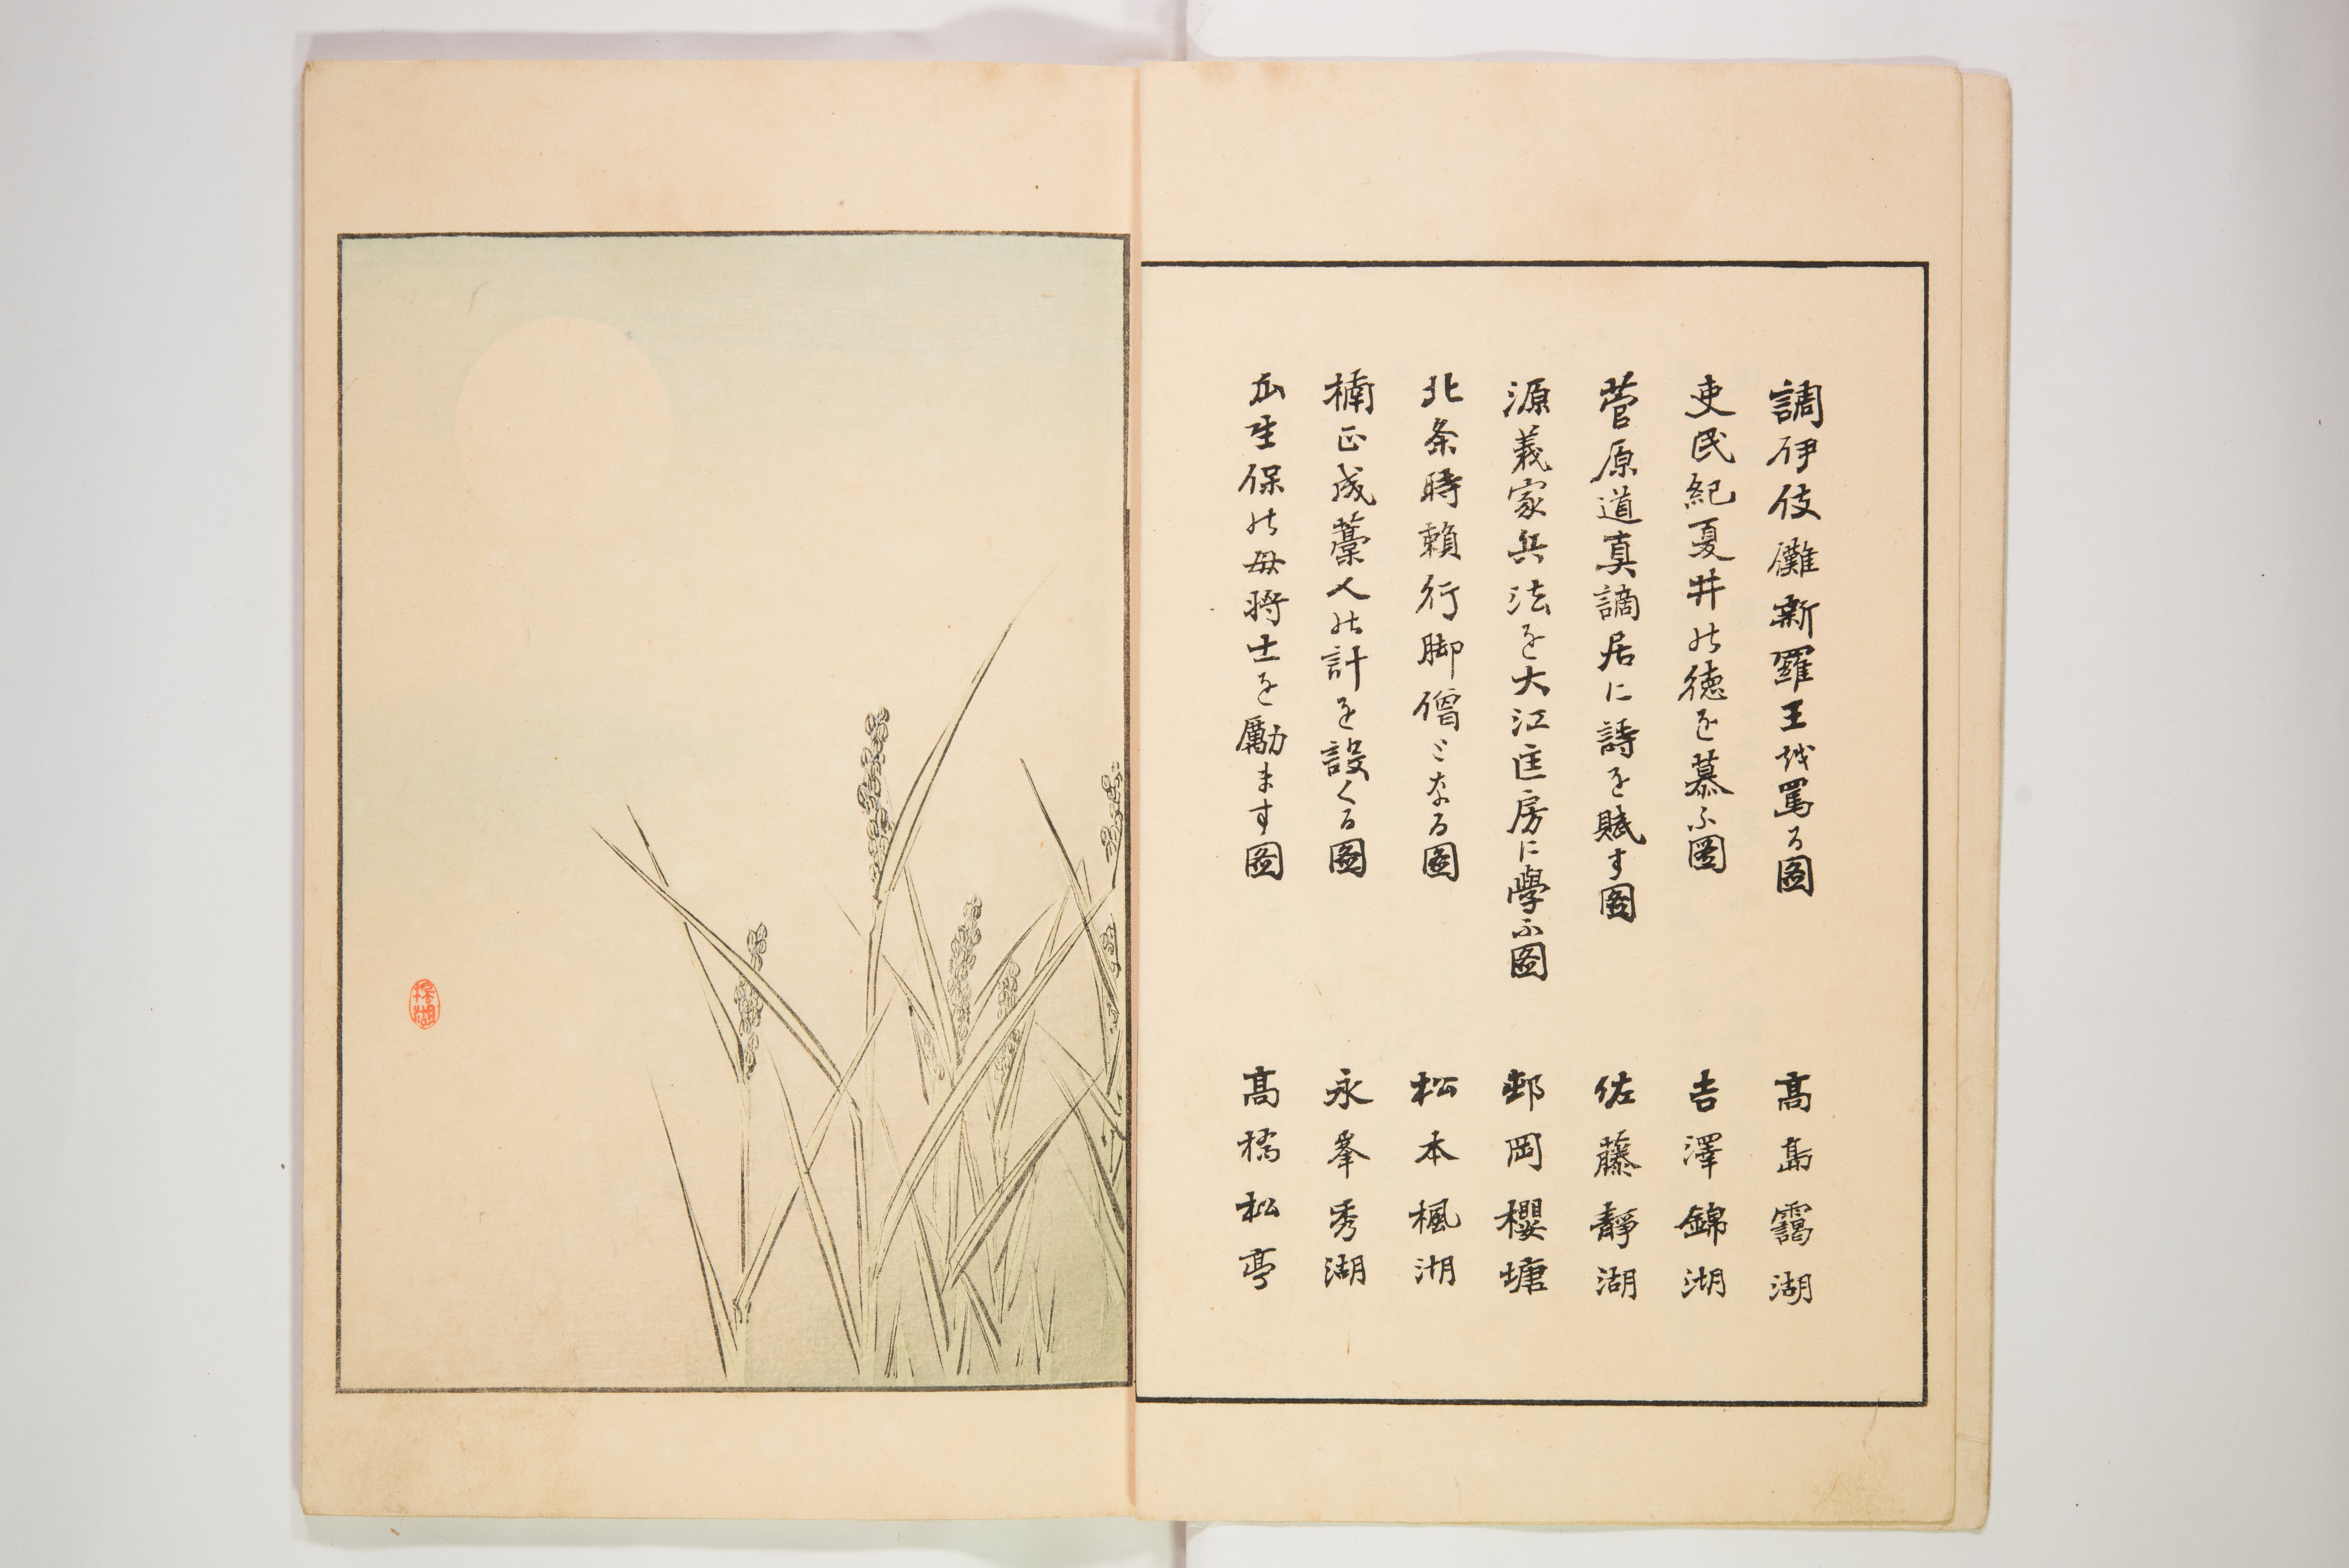 調伊伎儺新羅王越罵る圖　高島靄湖
吏民紀夏井の徳を慕ふ圖　吉澤錦湖
菅原道真謫居に詩を賦す圖　佐藤静湖
源義家兵法を大江匡房に學ふ圖　邨岡櫻塘
北条時頼行脚僧となる圖　松本楓湖
楠正成藁人の計を設くる圖　永峯秀湖
瓜生保の母将士を勵ます圖　高橋松亭